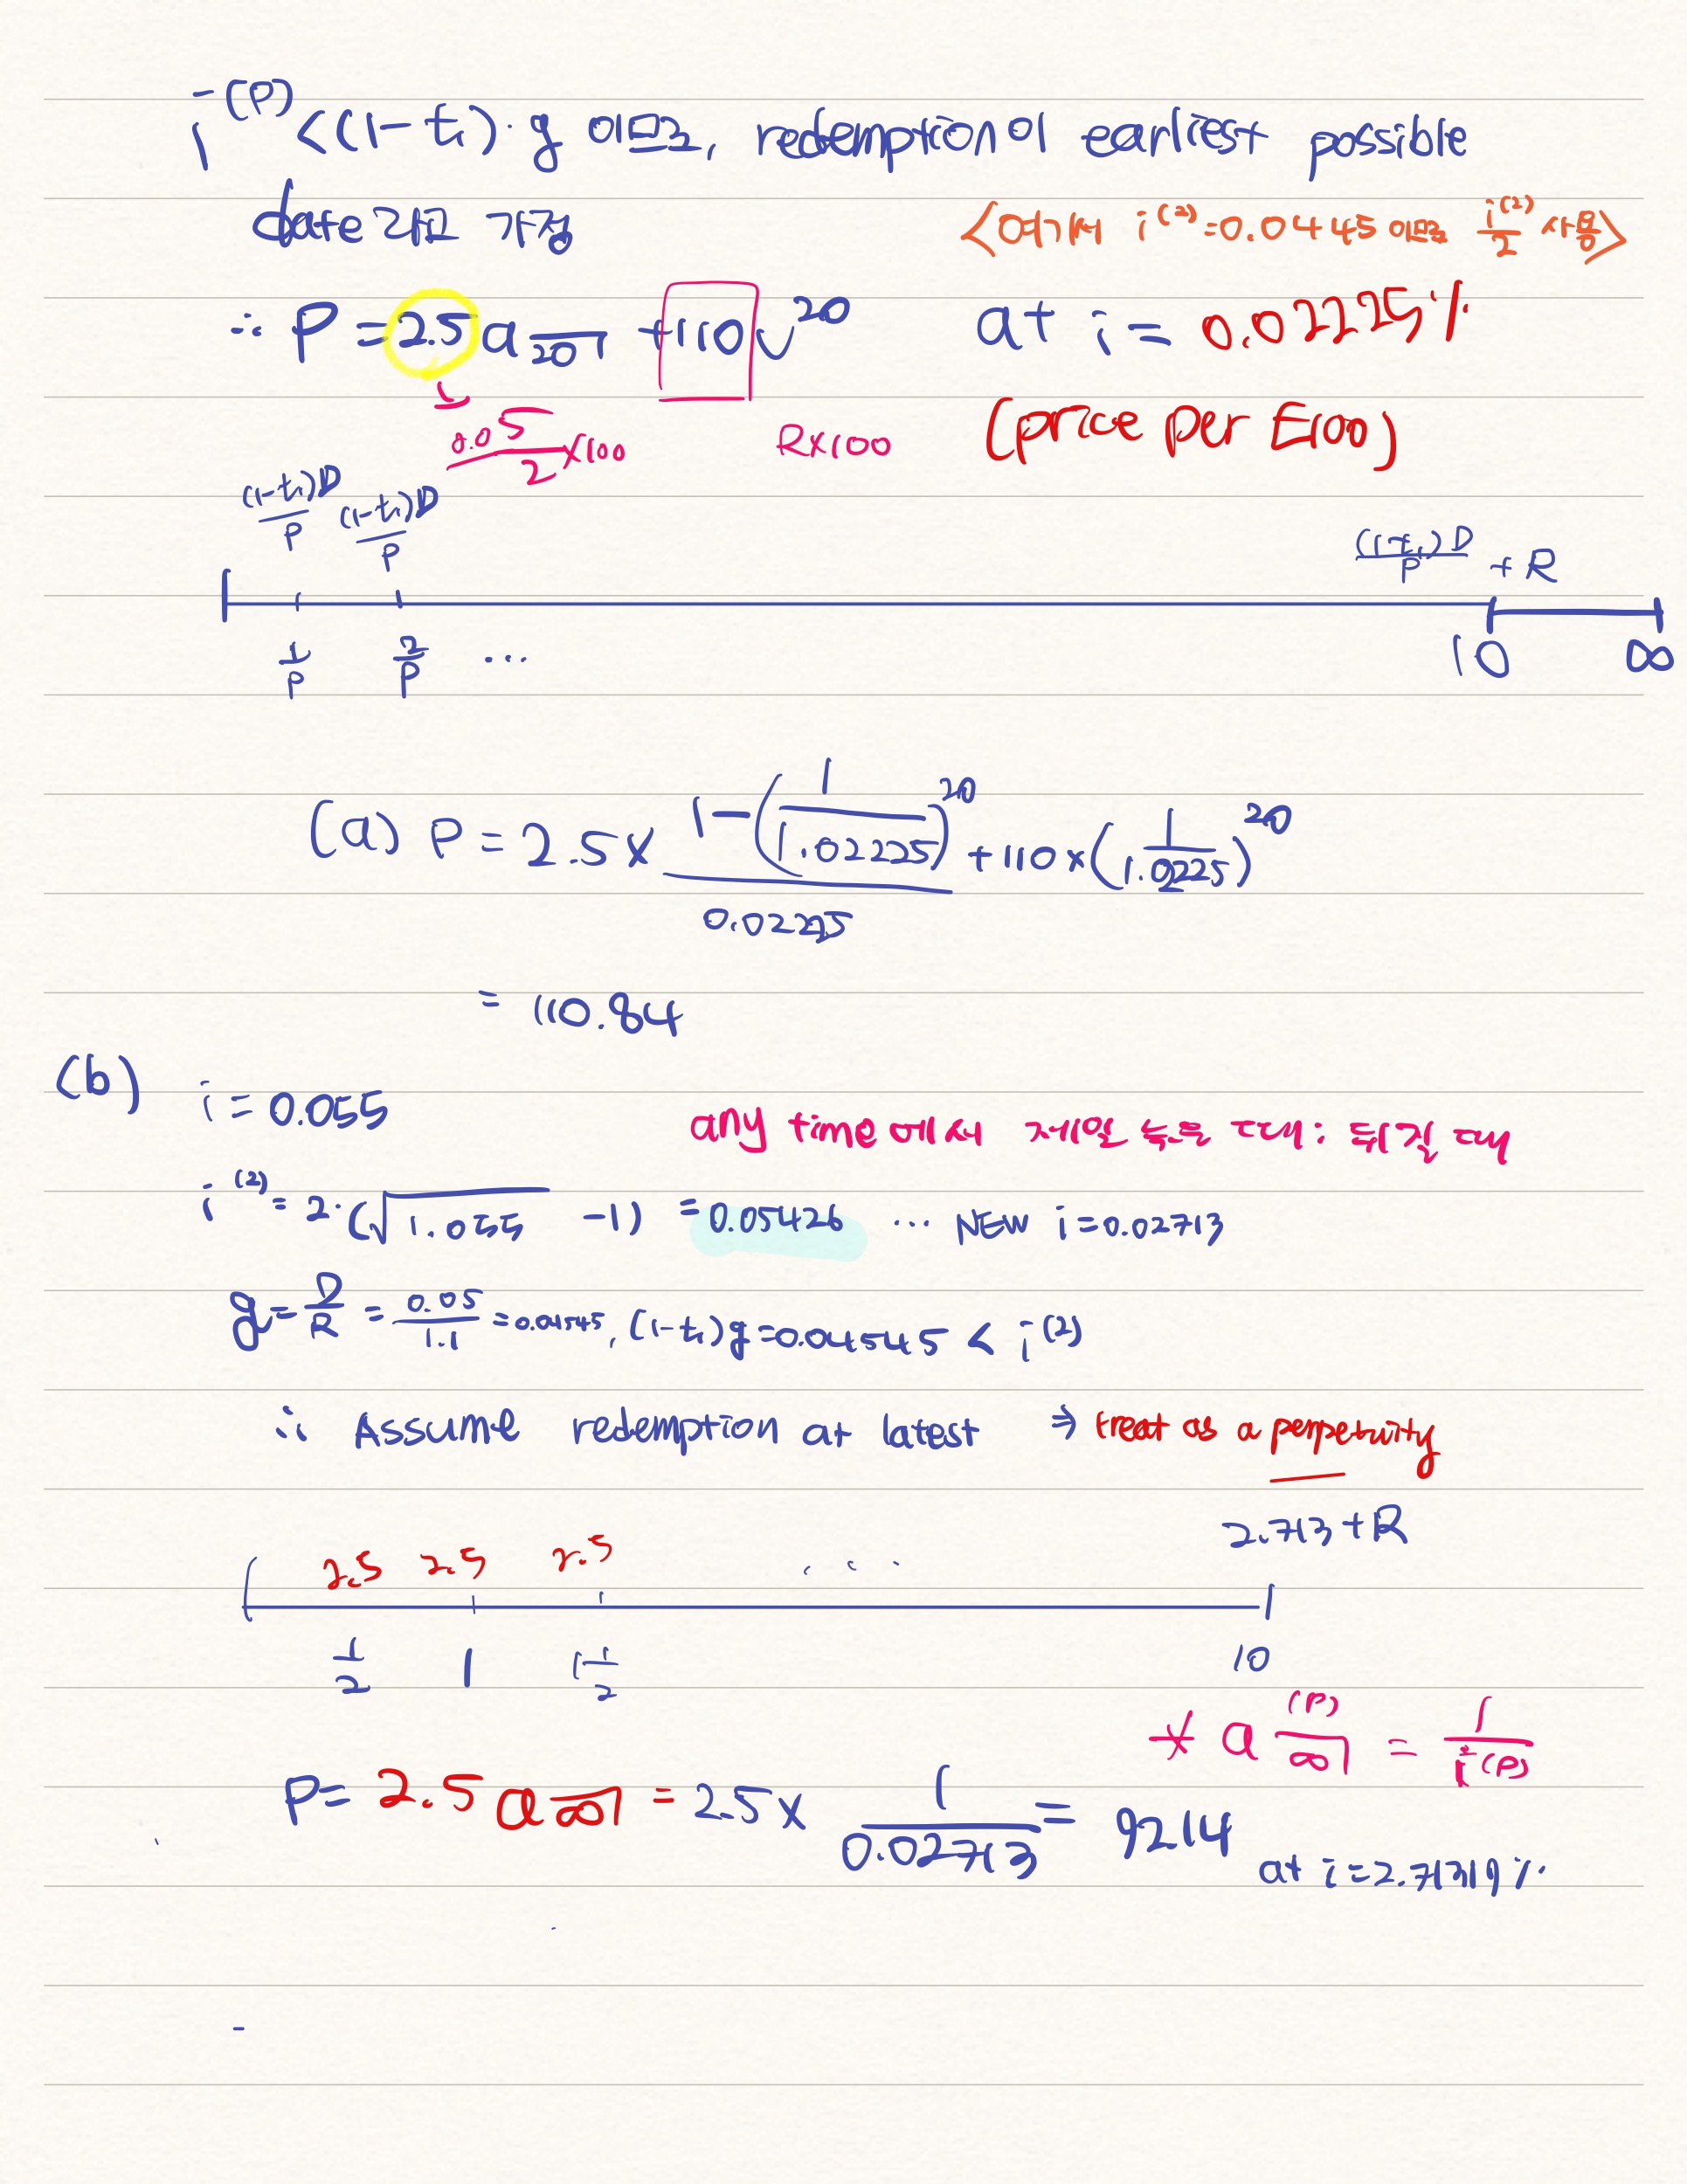 i^(P) < (1-t₁)·g 이므로, redemption이 earliest possible
date 라고 가정
<여기서 i^(2)=0.0445 이므로 i^(2)/2 사용>
∴ P = 2.5 a_20⌉ + 110 v^20 at i = 0.02225%
0.05/2 ×100 R×100 (price per £100)
(1-t₁)D/P (1-t₁)D/P (1-t₁)D/P + R
1/P 2/P ... 10 ∞
(a) P = 2.5 × (1-(1/1.02225)^20)/0.02225 + 110 × (1/1.0225)^20
= 110.84
(b) i = 0.055
any time 에서 제일 늦을 때: 뒤질 때
i^(2) = 2·(√1.055 -1) = 0.05426 ... NEW i = 0.02713
g = D/R = 0.05/1.1 = 0.04545, (1-t₁)g = 0.04545 < i^(2)
∴ Assume redemption at latest ⇒ treat as a perpetuity
2.713 + R
2.5 2.5 2.5 ...
1/2 1 1 1/2 10
* a^(P)_∞⌉ = 1/i^(P)
P = 2.5 a_∞⌉ = 2.5 × 1/0.02713 = 92.14
at i = 2.71319%